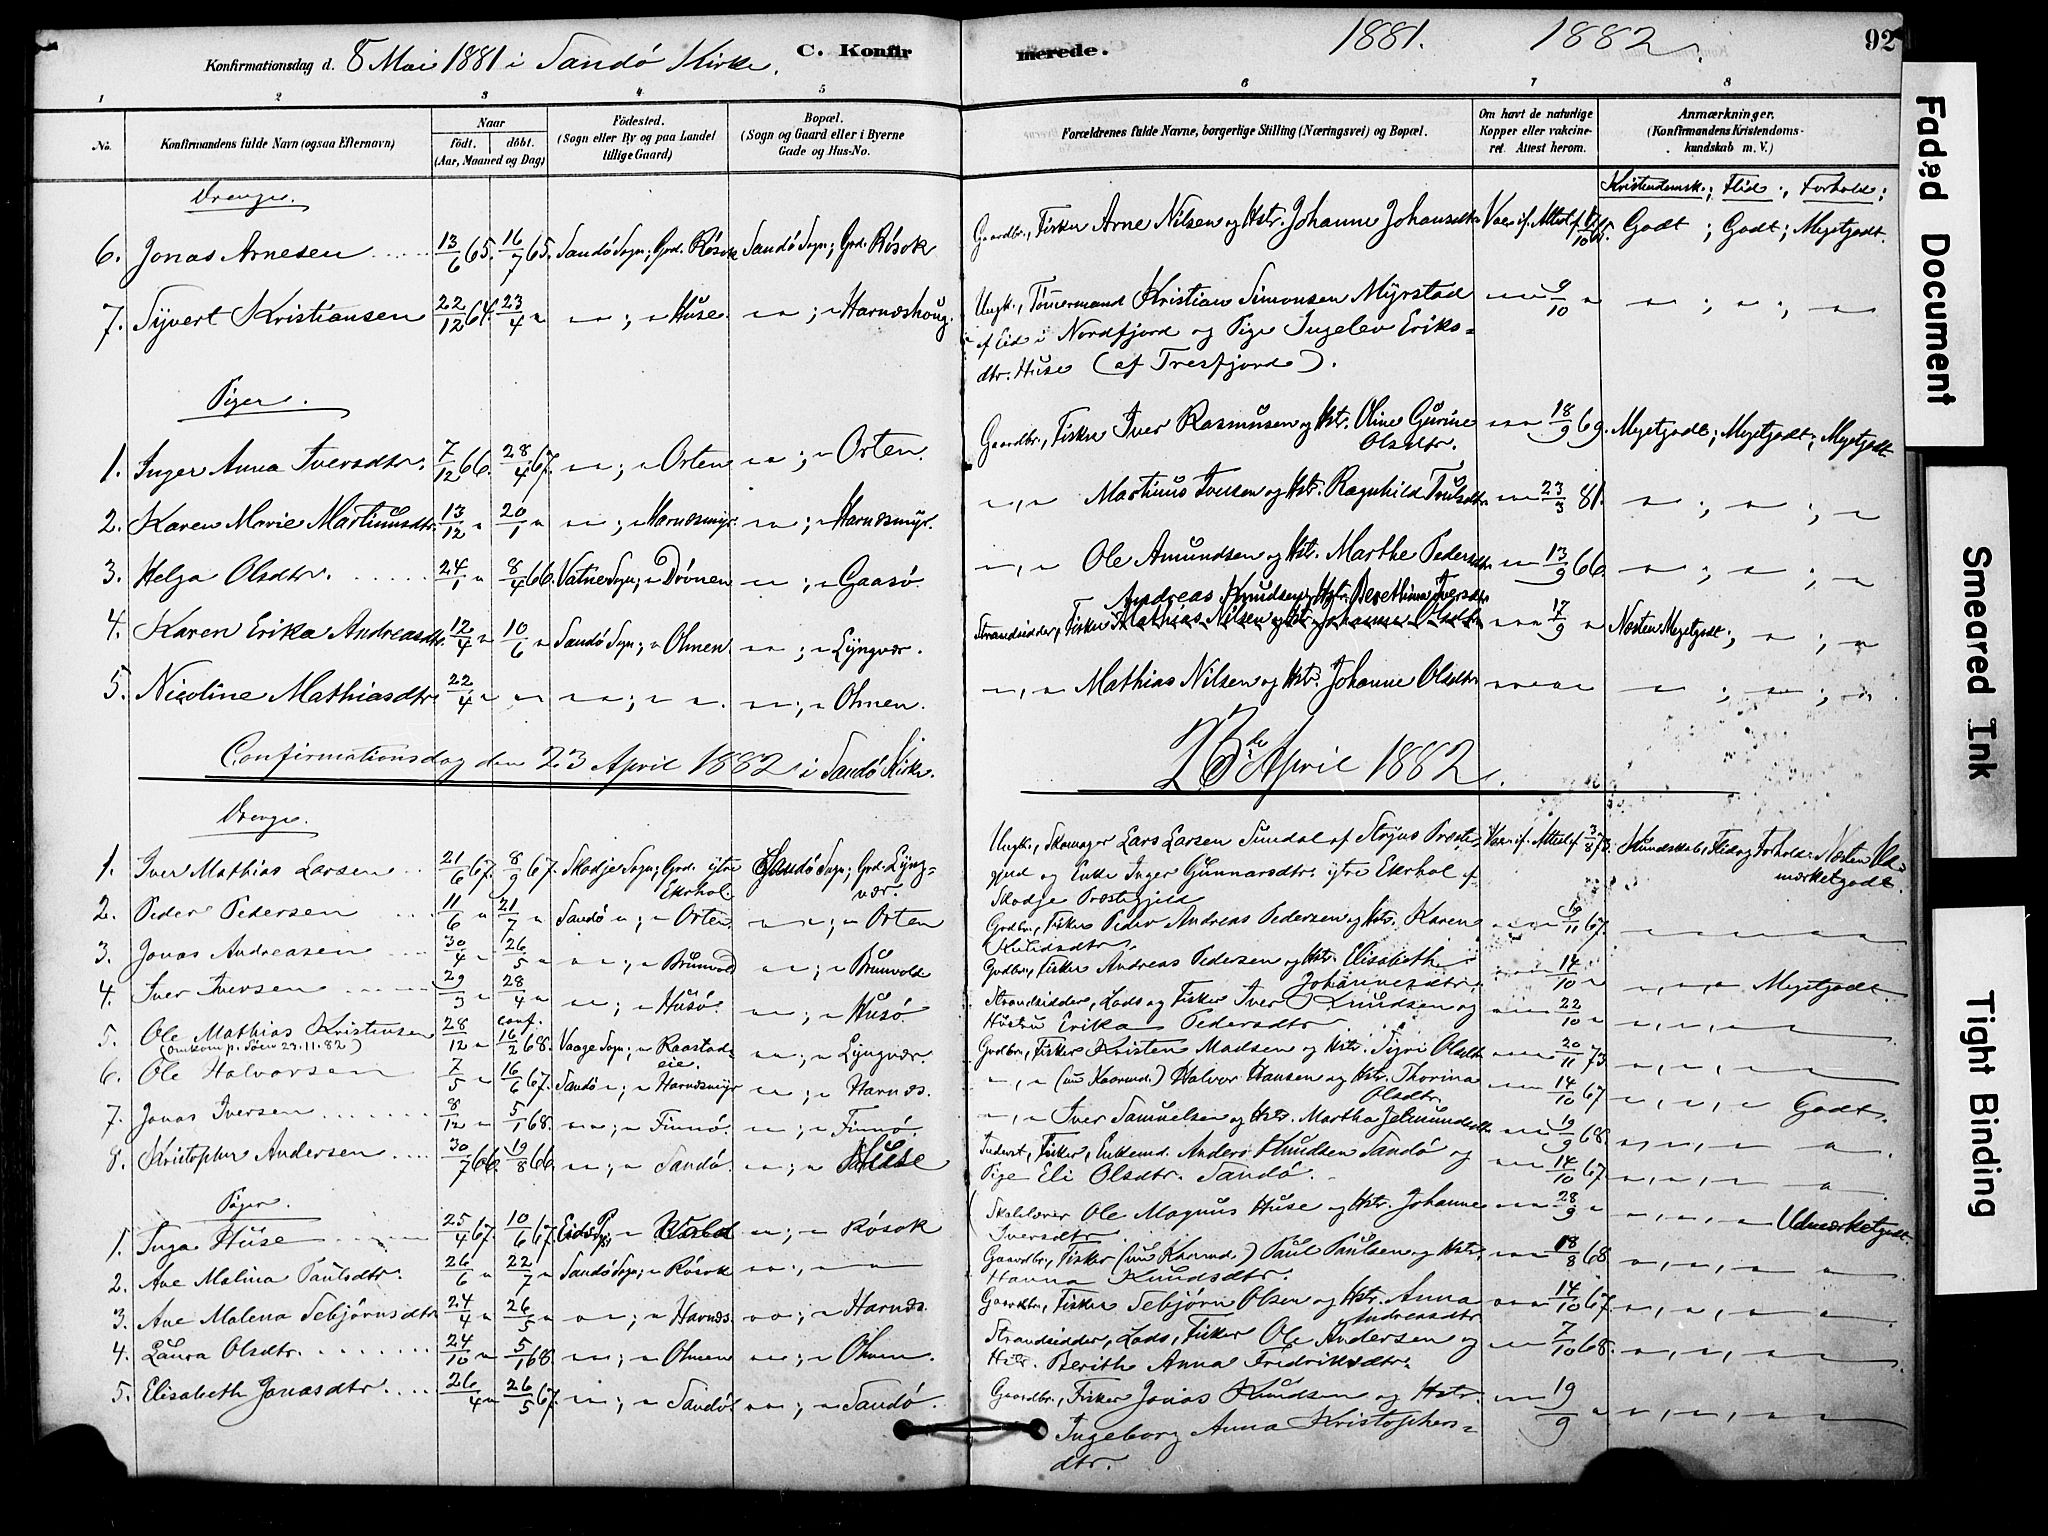 Konfirmationsdag d. 8 Mai 1881 i Sandö Kirke. C. Konfir
merede. 1881. 1882. 92
1 2 3 4 5 6 7 8
No. Konfirmandens fulde Navn (ogsaa Efternavn) Naar födt. döbt. (Aar, Maaned og Dag) Födested. (Sogn eller By og paa Landet tillige Gaard) Bopæl. (Sogn og Gaard eller i Byerne Gade og Hus-No. Forældrenes fulde Navne, borgerlige Stilling (Næringsvei) og Bopæl. Om havt de naturlige Kopper eller vakcineret. Attest herom. Anmærkninger. (Konfirmandens Kristendomskundskab m. V.)
Drenge. Kristendomsk.; Flid.; Forhold;
6. Jonas Arnesen 13/6 65. 16/7 65. Sandö Sogn; Grd. Rösok Sandö Sogn; Grd. Rösok Gaardbr., Fisker Arne Nilsen og Hstr. Johanne Johansdtr. Vac. if. Attest f. Godt; Godt; Megetgodt.
7. Syvert Kristiansen 22/12 64. 23/4 " " " ; " Huse. " " ; " Harnæshoug. Ungk., Tömermand Kristian Simonsen Myrstad " " " 9/10 " " ; " ; "
af Eid i Nordfjord og Pige Ingelev Eriks=
dtr. Huse (af Tresfjord).
Piger.
1. Inger Anna Iversdtr. 7/12 66. 28/4 67. " " ; " Orten " " ; " Orten. Gaardbr., Fisker Iver Rasmusen og Hstr. Oline Gurine Olsdtr. " " " 18/9 69. Megetgodt; Megetgodt; Megetgodt
2. Karen Marie Martinusdtr. 13/12 " 20/1 " " " ; " Harnæsmyr. " " ; " Harnæsmyr. " , " Martinus Iversen og Hstr. Ragnhild " " 23/3 81. " ; " ; "
3. Helga Olsdtr. 24/1 " 8/4 66. Vatne Sogn; " Drönen " " ; " Gaasö. " , " Ole Amundsen og Hstr. Marthe Pedersdtr. " " 13/9 66. " ; " ; "
Andreas Knudsen og Hstr. Berethina Iversdtr.
4. Karen Erika Andreasdtr. 12/4 " 10/6 " Sandö Sogn; " Ohnen " " ; " Lyngvær. Strandsidder, Fisker Mathias Nilsen og Hstr. Johanne Olsdtr. " " " 17/9 " Næsten Megetgodt; " ; "
5. Nicoline Mathiasdtr. 22/4 " " " " " ; " " . " " ; " Ohnen. " , " Mathias Nilsen og Hstr. Johanne Olsdtr. " " " " " ; " ; "
Confirmationsdag den 23 April 1882 i Sandö Kirke. 23de April 1882.
Drenge.
1. Iver Mathias Larsen 21/6 67. 8/9 67. Skodje Sogn; Grd. ytre Ekrhol. Sandö Sogn; Grd. Lyngvær. Ungk., Skomager Lars Larsen Sundal af Stryns Præste= Vac. if. Attest f. 3/8 73. Kundskab, Flid og Forhold: Næsten Ud=
gjeld og Enke Inger Gunnarsdtr. ytre Ekrhol af mærketgodt.
Skodje Præstegjeld
2. Peder Pedersen 11/6 " 21/7 " Sandö " ; " Orten. " " ; " Orten Grdbr., Fisker Peder Andreas Pedersen og Hstr. Karen " " 19/11 67. " " " "
Knudsdtr.
3. Jonas Andreasen 30/4 " 26/5 " " " ; " Brunvold " " ; " Brunvolde Grdbr., Fisker Andreas Pedersen og Hstr. Elisabeth " " 14/10 " " , " , " Megetgodt.
Johannesdtr.
4. Iver Iversen 29/3 " 28/4 " " " ; " Husö. " " ; " Husö. Strandsidder, Lods og Fisker Iver Knudsen og " " 22/10 " " , " , " "
Hustru Erika Pedersdtr.
5. Ole Mathias Kristensen 28/12 " conf. 16/2 68. Vaage Sogn; " Raastad= eie. " " ; " Lyngvær Grdbr., Fisker Kristen Madsen og Hstr. Syri Olsdtr. " " 20/11 73 " , " , " "
(Omkom p. Söen 23.11.82)
6. Ole Halvorsen 7/5 " 16/6 67. Sandö " ; " Harnæsmyr " " ; " Harnæs. " , " (nu Kaarmd.) Halvor Hansen og Hstr. Thorina " " 14/10 67 " , " , " Godt.
Olsdtr.
7. Jonas Iversen 8/12 " 5/1 68. " " ; " Finnö. " " ; " Finnö. " , " Iver Samuelsen og Hstr. Martha Jetmundsdtr. " " 19/9 68. " , " , " "
8. Kristopher Andersen 30/7 66. 19/8 66. " " ; " Sandö. " " ; " Huse Inderst, Fisker, Enkemd. Anders Knudsen Sandö og " " 14/10 67. " , " , " "
Pige Eli Olsdtr. Sandö.
Piger.
1. Inga Huse 25/4 67. 10/6 67. Eids " " " ; " Rösok Skolelærer Ole Magnus Huse og Hstr. Johanne " " 28/9 " " , " , " Udmærketgodt.
Iversdtr.
2. Ane Malina Paulsdtr. 26/6 " 22/7 " Sandö Sogn; " Rösok " " ; " " Gaardbr., Fisker (nu Kaarmd.) Paul Paulsen og Hstr. " " 18/8 68 " , " , " "
Hanna Knudsdtr.
3. Ane Malena Sebjörnsdtr. 24/4 " 26/5 " " " ; " Harnæs. " " ; " Harnæs. Gaardbr., Fisker Sebjörn Olsen og Hstr. Anna " " 14/10 67. " , " , " "
Andreasdtr.
4. Laura Olsdtr. 24/10 " 5/1 68. " " ; " Ohnen " " ; " Ohnen. Strandsidder, Lods, Fisker Ole Andersen og " " 7/10 68. " , " , " "
Hstr. Berith Anna Fredriksdtr.
5. Elisabeth Jonasdtr. 26/4 " 26/5 67. " " ; " Sandö. " " ; " Sandö. Gaardbr., Fisker Jonas Knudsen og Hstr. " " 19/9 " " , " , " "
Ingeborg Anna Kristophers=
dtr.
Faded Document
Smeared Ink
Tight Binding